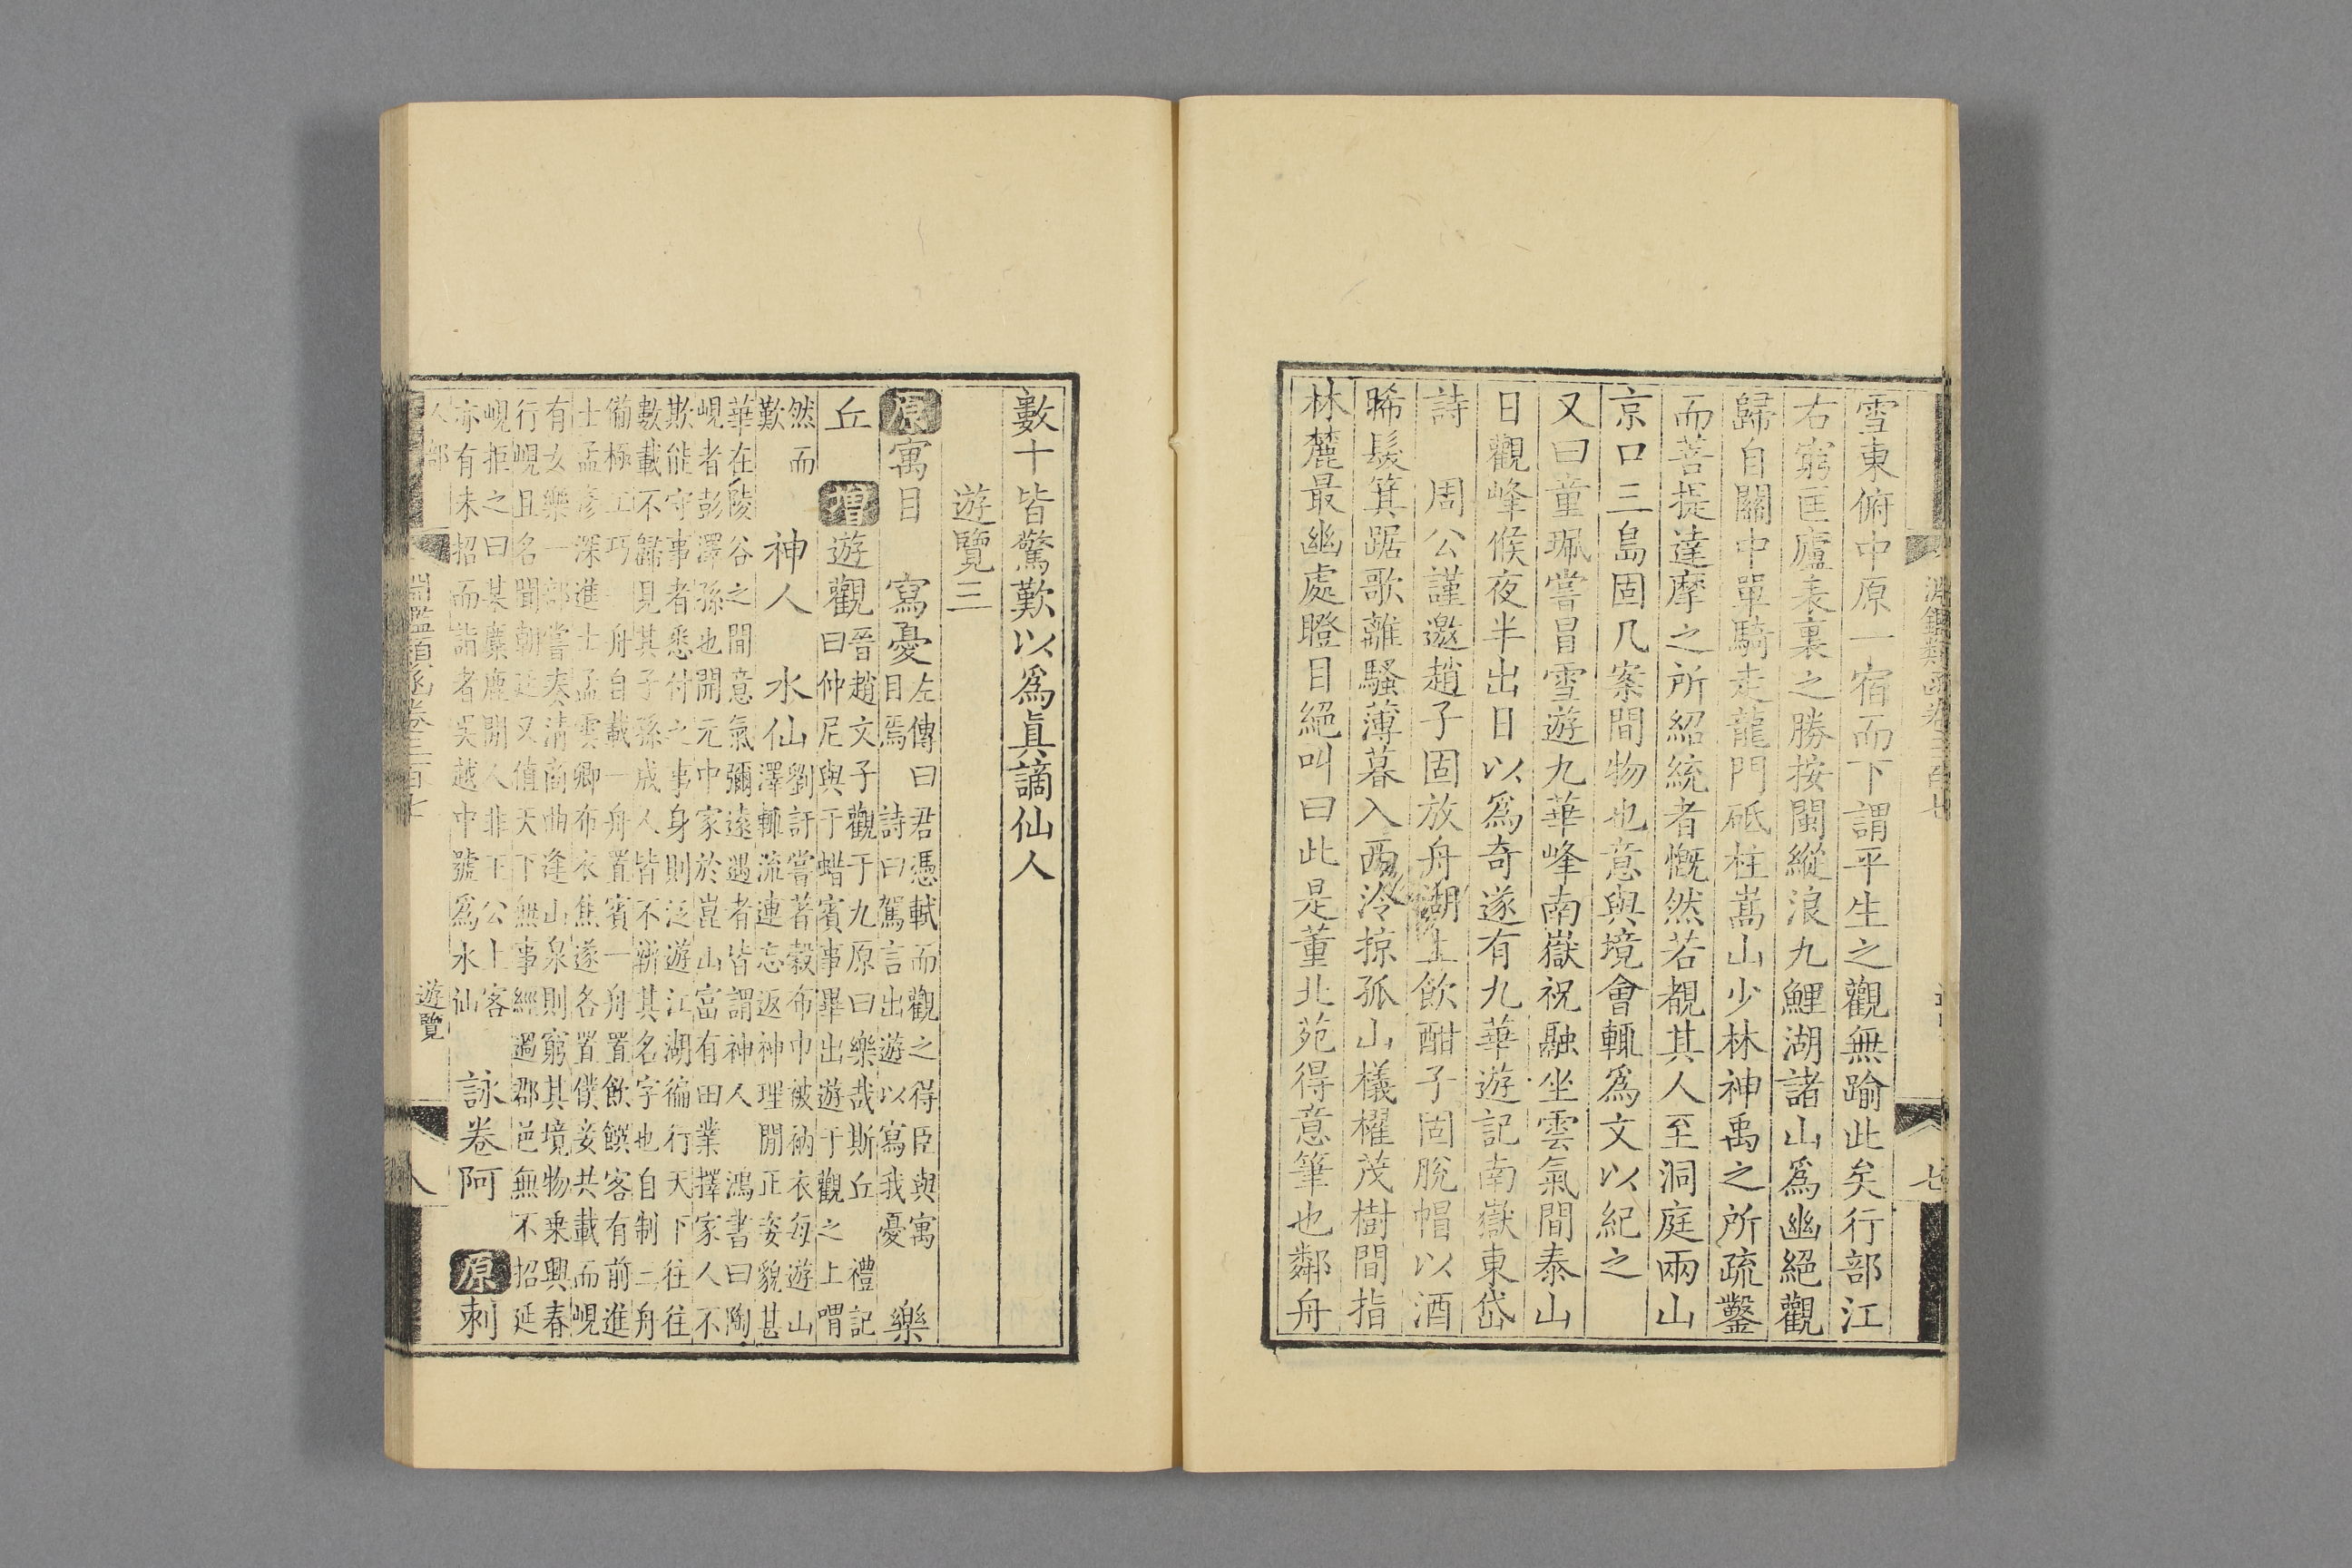 淵鑑類函卷三百七
七
雪東俯中原一宿而下謂平生之觀無踰此矣行部江
右窮匡廬表裏之勝按閩縱浪九鯉湖諸山爲幽絕觀
歸自關中單騎走龍門砥柱嵩山少林神禹之所疏鑿
而菩提達摩之所紹統者慨然若覩其人至洞庭兩山
京口三島固几案間物也意與境會輒爲文以紀之
又曰童珮嘗冒雪遊九華峰南嶽祝融坐雲氣間泰山
日觀峰候夜半出日以爲奇遂有九華遊記南嶽東岱
詩　周公謹邀趙子固放舟湖上飮酣子固脫帽以酒
晞髮箕踞歌離騷薄暮入西泠掠孤山檥櫂茂樹間指
林麓最幽處瞪目絕叫曰此是董北苑得意筆也鄰舟
數十皆驚歎以爲眞謫仙人
遊覽三
原寓目　寫憂左傳曰君憑軾而觀之得臣與寓
目焉　詩曰駕言出遊以寫我憂　樂
丘　增遊觀晉趙文子觀于九原曰樂哉斯丘　禮記
曰仲尼與于蜡賓事畢出遊于觀之上喟
然而
歎　神人　水仙劉訏嘗著穀布巾被衲衣每遊山
澤輒流連忘返神理閒正姿貌甚
華在陵谷之間意氣彌遠遇者皆謂神人　鴻書曰陶
峴者彭澤孫也開元中家於崑山富有田業擇家人不
欺能守事者悉付之事身則泛遊江湖徧行天下往往
數載不歸見其子孫成人皆不辨其名字也自制二舟
備極工巧一舟自載一舟置賓一舟置飲饌客有前進
士孟彥深進士孟雲卿布衣焦遂各置僕妾共載而峴
有女樂一部嘗奏清商曲逢山泉則窮其境物乘興春
行峴且名聞朝廷又值天下無事經過郡邑無不招延
峴拒之曰某麋鹿閒人非王公上客
亦有未招而詣者吳越中號爲水仙　詠卷阿　原刺
人部
淵鑑類函卷三百七
遊覽
八